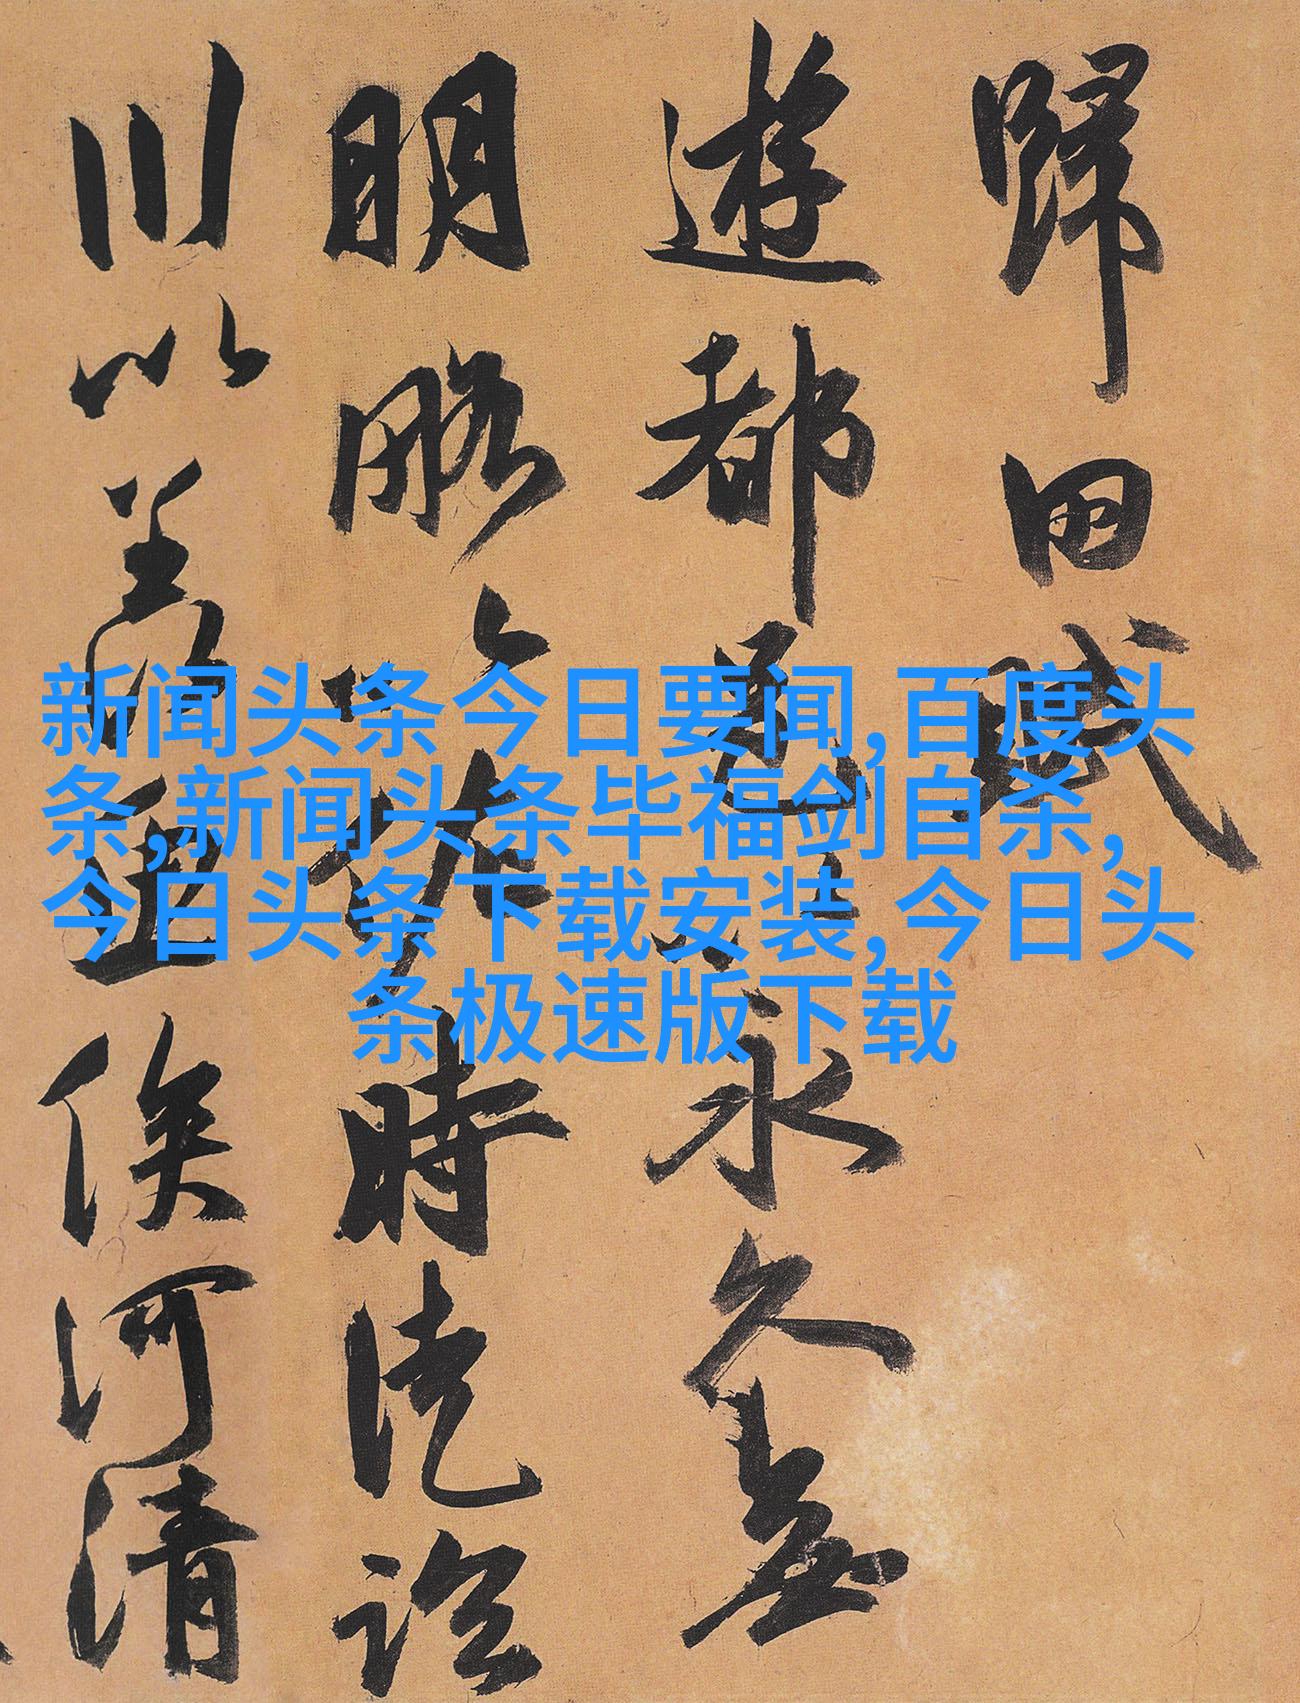 歸田賦
遊都邑以永久無
明略以佐時徒臨
川以羨俟河清
新闻头条今日要闻,百度头
条,新闻头条毕福剑自杀,
今日头条下载安装,今日头
条极速版下载